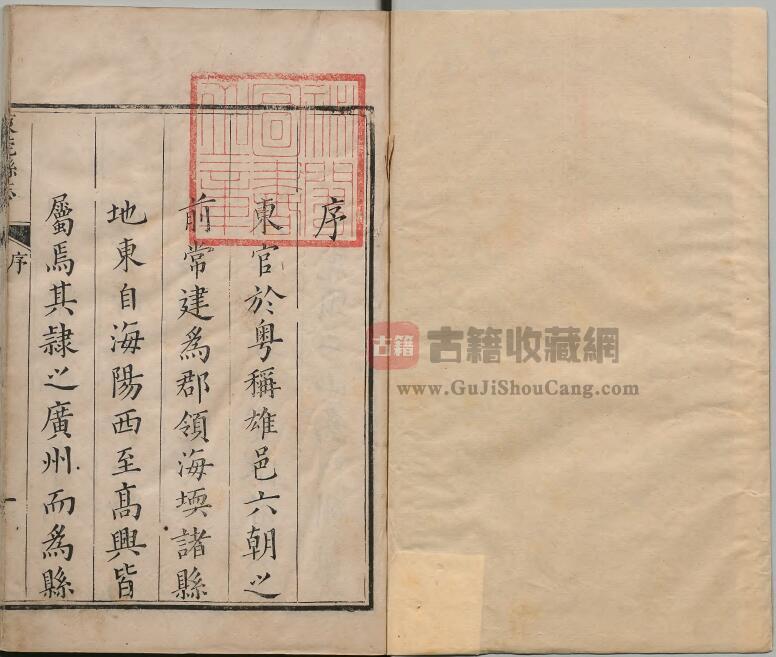 序
東官於粵稱雄邑六朝之
前常建爲郡領海堧諸縣
地東自海陽西至髙興皆
屬焉其隷之廣州而爲縣
東莞縣志
序
一
祕閣
圖書
之章
古籍
古籍收藏網
www.GuJiShouCang.com